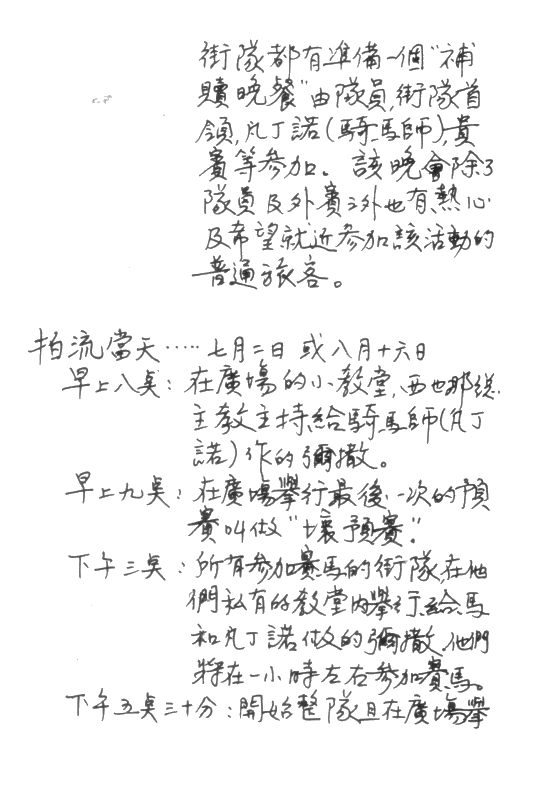 街隊都有準備一個"補
贖晚餐"由隊員,街隊首
領,凡丁諾(騎馬師),貴
賓等參加。該晚會除了
隊員及外賓之外也有熱心
及希望就近參加該活動的
普通旅客。
拍流當天‥‥‥七月二日 或八月十六日
早上八点:在廣場的小教堂,西也那總
主教主持給騎馬師(凡丁
諾)作的彌撒。
早上九点:在廣場舉行最後一次的預
賽叫做"壞預賽"。
下午三点:所有參加賽馬的街隊,在他
們私有的教堂內舉行給馬
和凡丁諾做的彌撒,他們
將在一小時左右參加賽馬。
下午五点三十分:開始整隊且在廣場舉